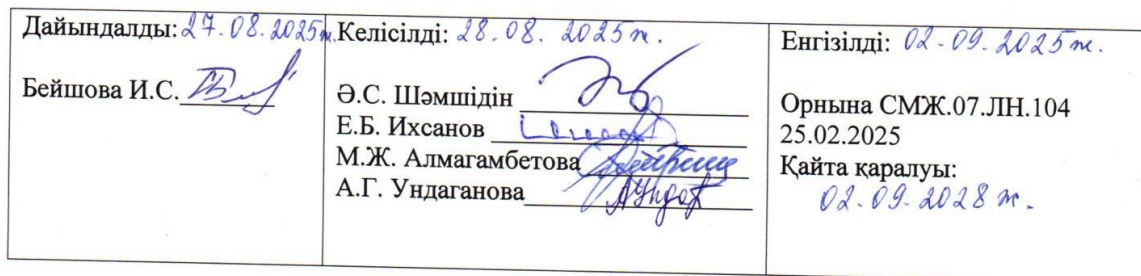 Дайындалды: 27.08.2025ж.
Бейшова И.С.
Келісілді: 28.08.2025ж.
Ә.С. Шәмшідін
Е.Б. Ихсанов
М.Ж. Алмагамбетова
А.Г. Ундаганова
Енгізілді: 02.09.2025ж.
Орнына СМЖ.07.ЛН.104
25.02.2025
Қайта қаралуы:
02.09.2028 ж.